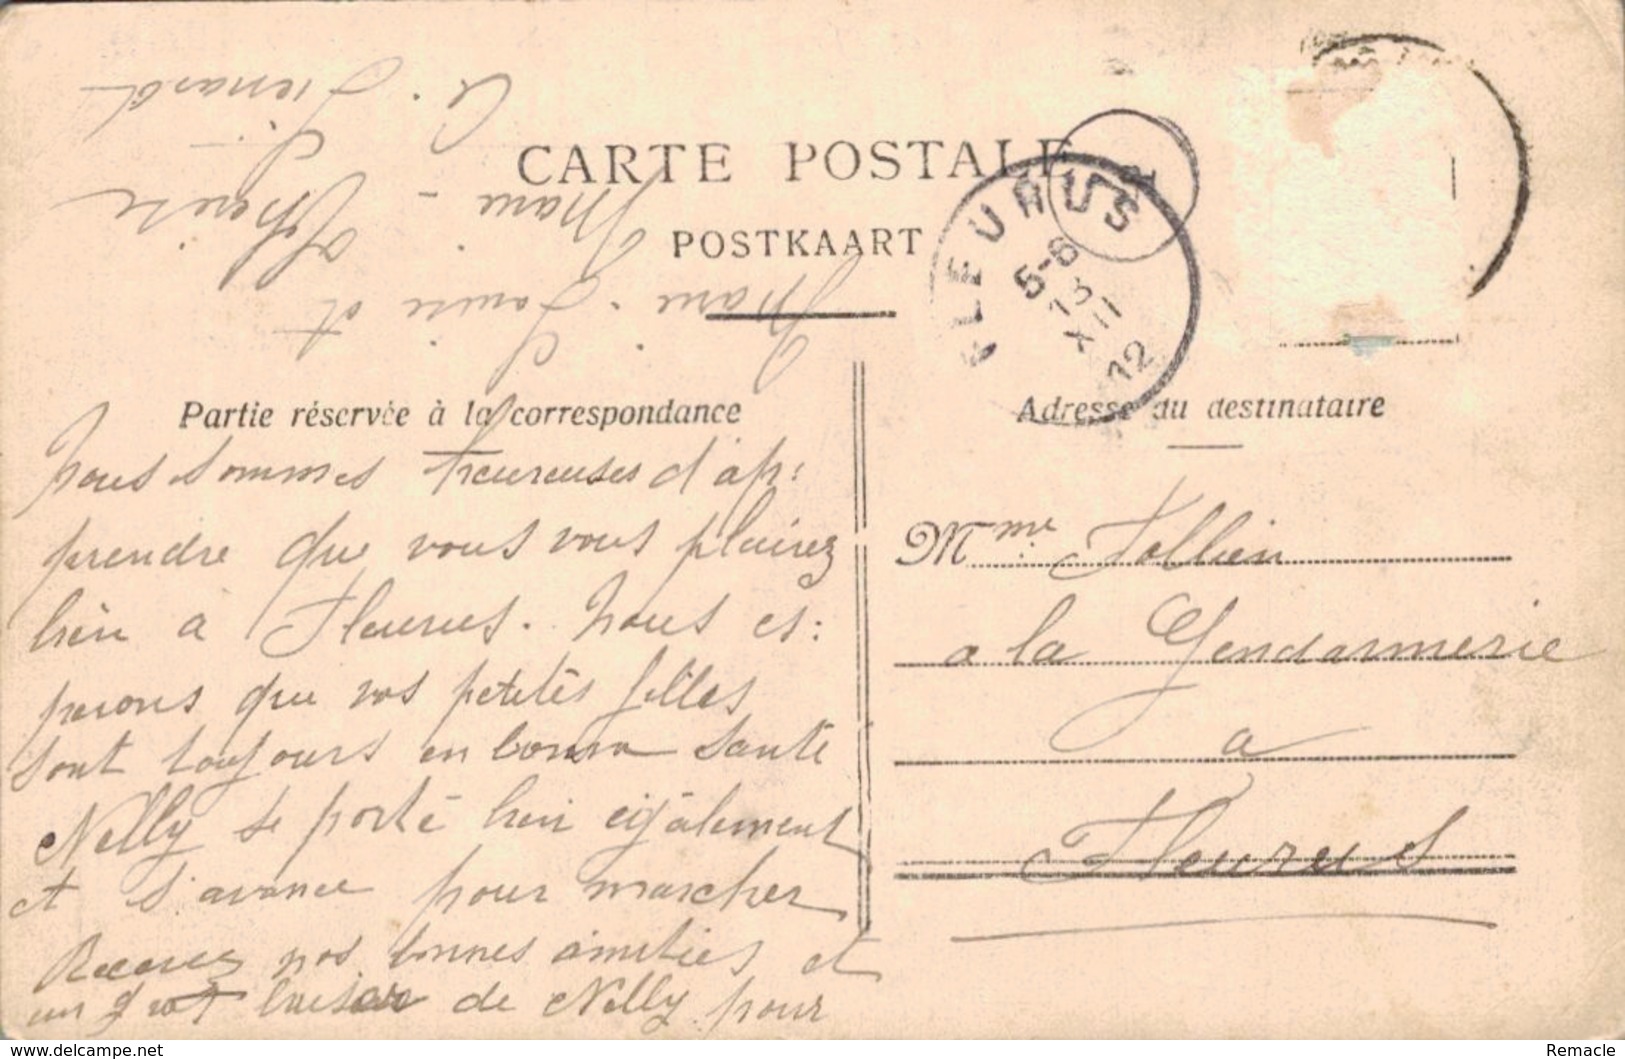 CARTE POSTALE
POSTKAART
FLEURUS
5-6
13
XII
12
Partie réservée à la correspondance
Adresse du destinataire
Nous sommes heureuses d'ap:
prendre que vous vous plairez
bien a Fleurus. Nous es:
perons que vos petites filles
sont toujours en bonne santé
Nelly se porte bien également
et s'avance pour marcher
Recevez nos bonnes amitiés et
un gros baiser de Nelly pour
Marie-Louise et
Marie-Thérèse
Mme Tollien
a la Gendarmerie
a
Fleurus
www.delcampe.net
Remacle